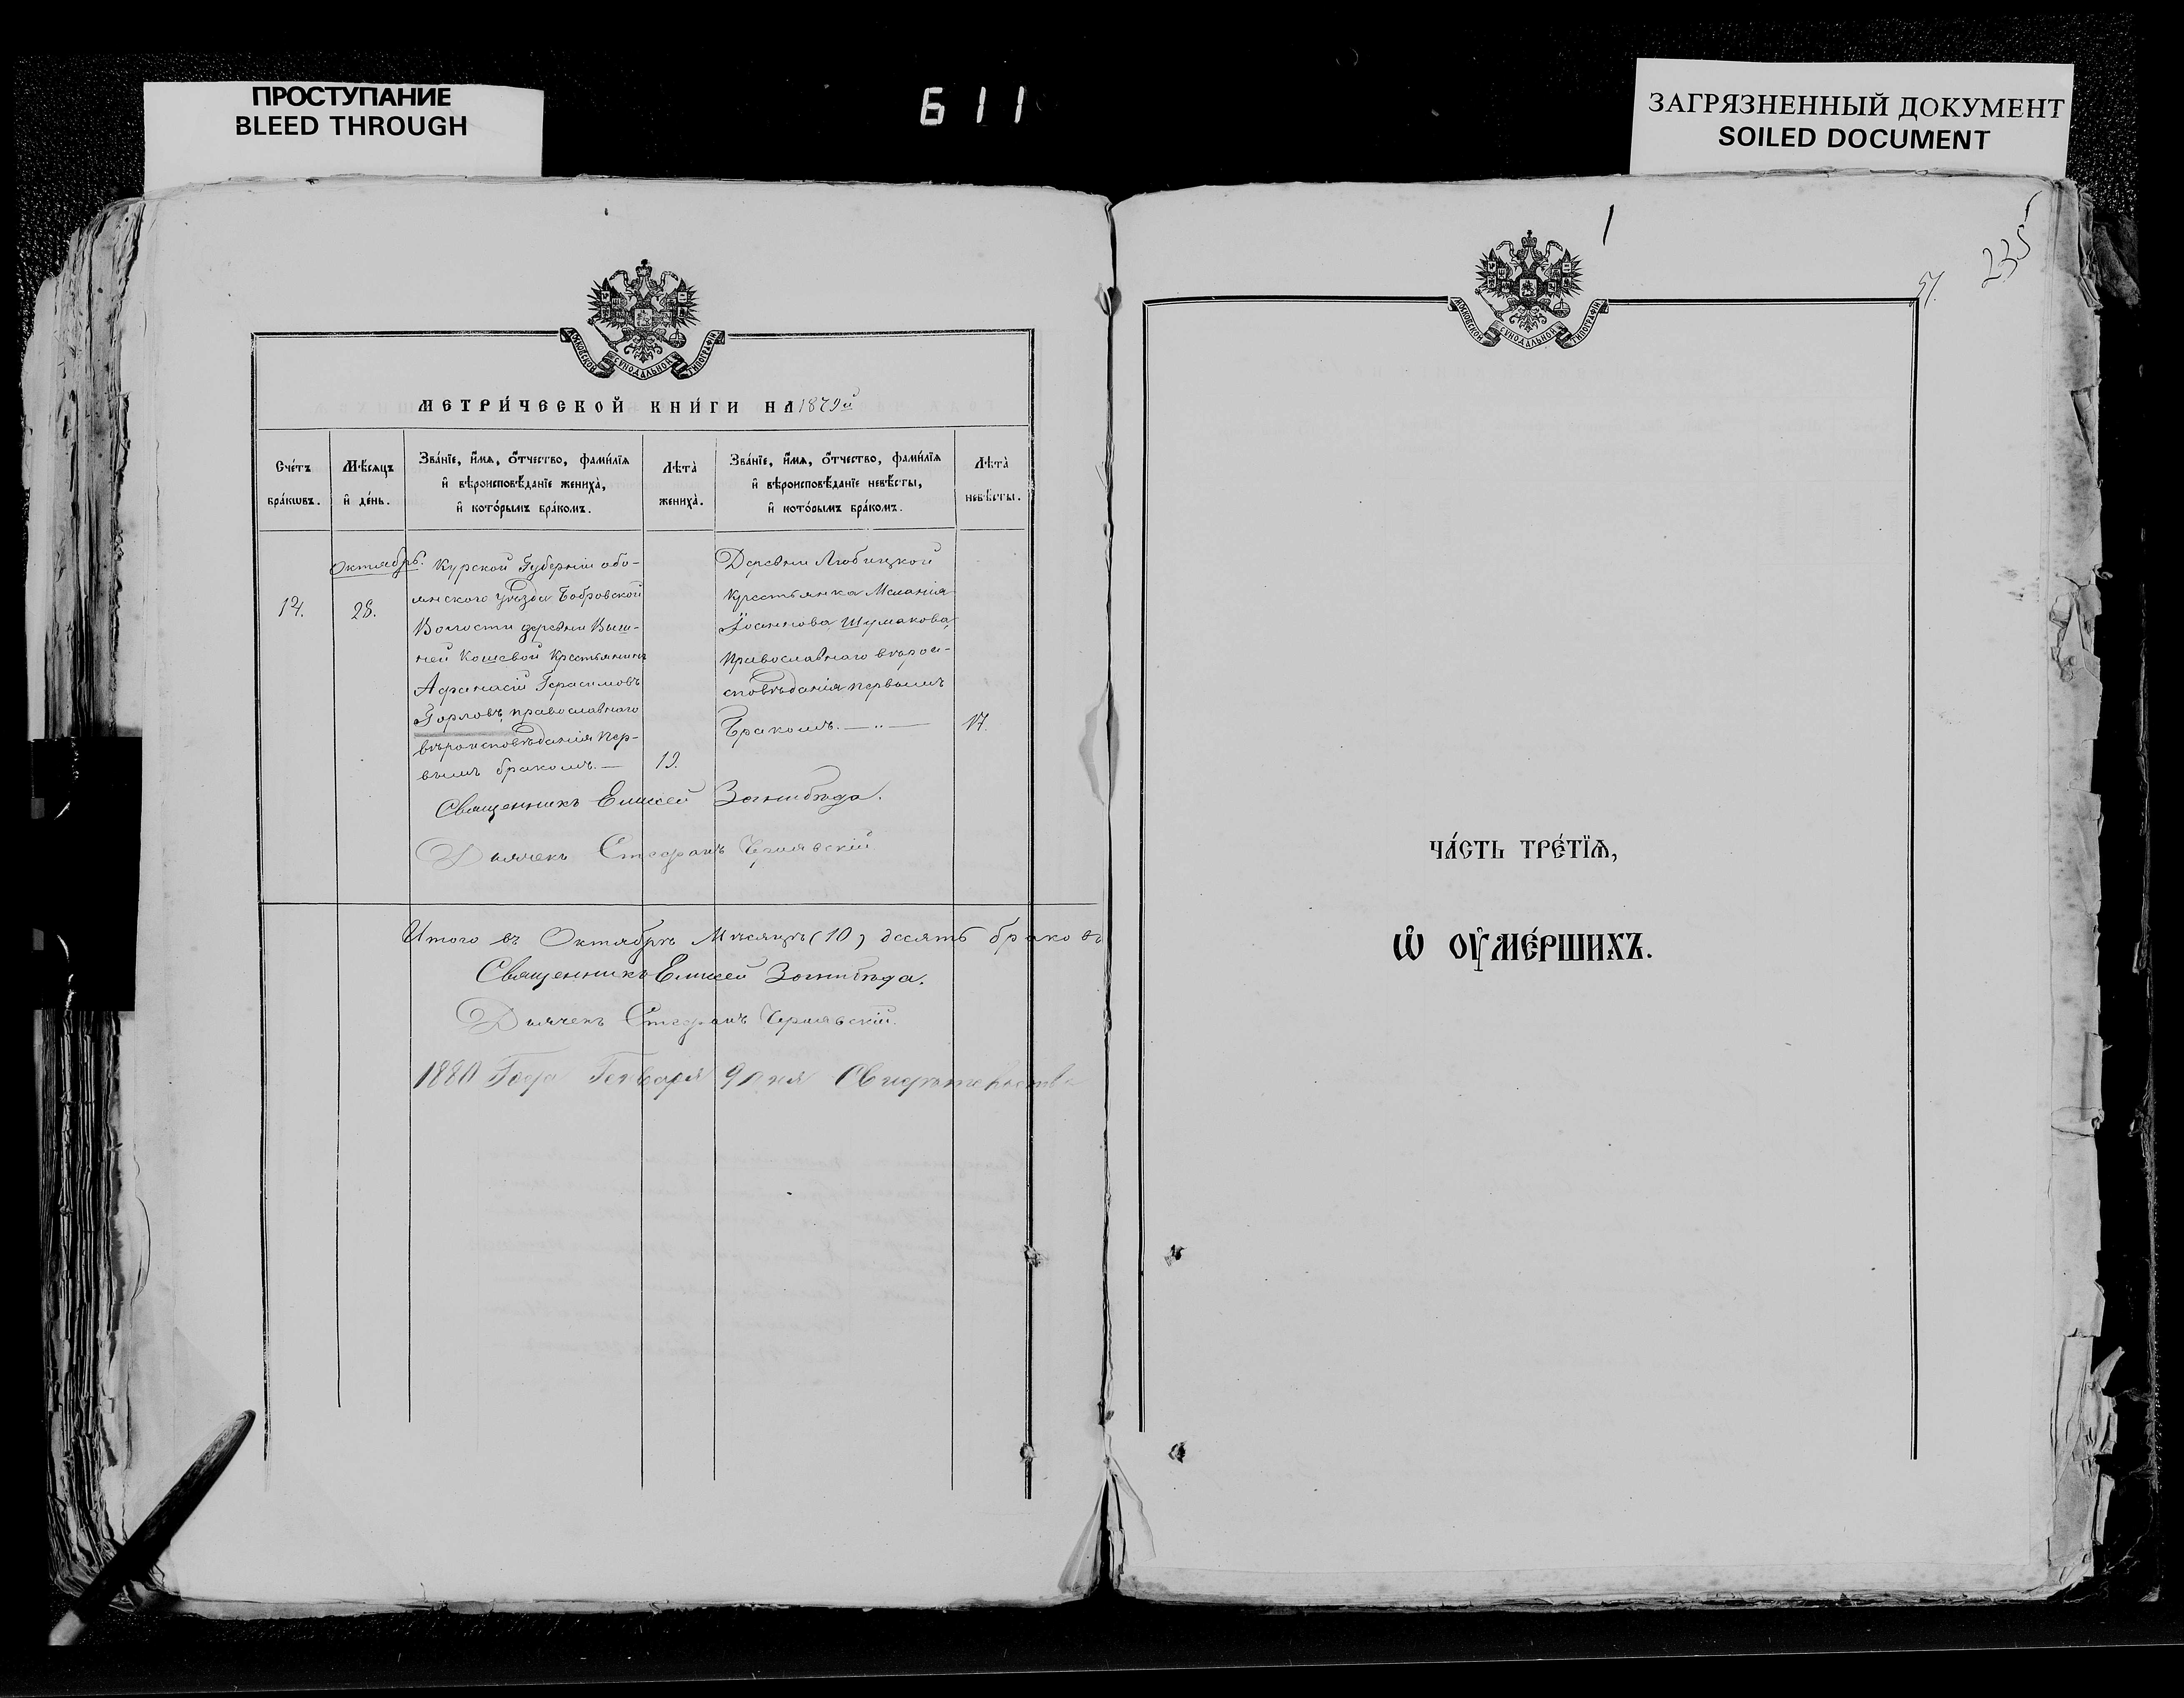 ПРОСТУПАНИЕ
BLEED THROUGH
611
ЗАГРЯЗНЕННЫЙ ДОКУМЕНТ
SOILED DOCUMENT
МОСКОВСКОЙ СѴНОДАЛЬНОЙ ТИПОГРАФІИ
МЕТРИ́ЧЕСКОЙ КНИ́ГИ НА 1879й
Сче́тъ бра́кѡвъ.
Мѣ́сѧцъ и҆ де́нь.
Зва́нїе, и҆́мѧ, ѻ҆́тчество, фами́лїѧ
и҆ вѣроисповѣ́данїе жениха̀,
и҆ кото́рымъ бра́комъ.
Лѣта̀ жениха̀.
Зва́нїе, и҆́мѧ, ѻ҆́тчество, фами́лїѧ
и҆ вѣроисповѣ́данїе невѣ́сты,
и҆ кото́рымъ бра́комъ.
Лѣта̀ невѣ́сты.
Октябрь.
14.
28.
Курской Губерніи обо-
янского уѣзда Бобровской
Волости деревни Выш-
ней Кошевой Крестьянинъ
Афанасій Герасимовъ
Горловъ, православнаго
вѣроисповѣданія пер-
вымъ бракомъ. —
19.
Деревни Любицкой
Крестьянка Меланія
Іоаннова Шумакова,
Православнаго вѣрои-
сповѣданія первымъ
Бракомъ. — " —
17.
Священникъ Елисей
Дьячекъ Стефанъ Чернявскій
Итого въ Октябрѣ Мѣсяцѣ (10) десять браковъ
Священникъ Елисей
Дьячекъ Стефанъ Чернявскій.
1880 Года Генваря 9 дня
1
51.
235
МОСКОВСКОЙ СѴНОДАЛЬНОЙ ТИПОГРАФІИ
ЧА́СТЬ ТРЕ́ТЇѦ,
Ѽ ОУ҆МЕ́РШИХЪ.